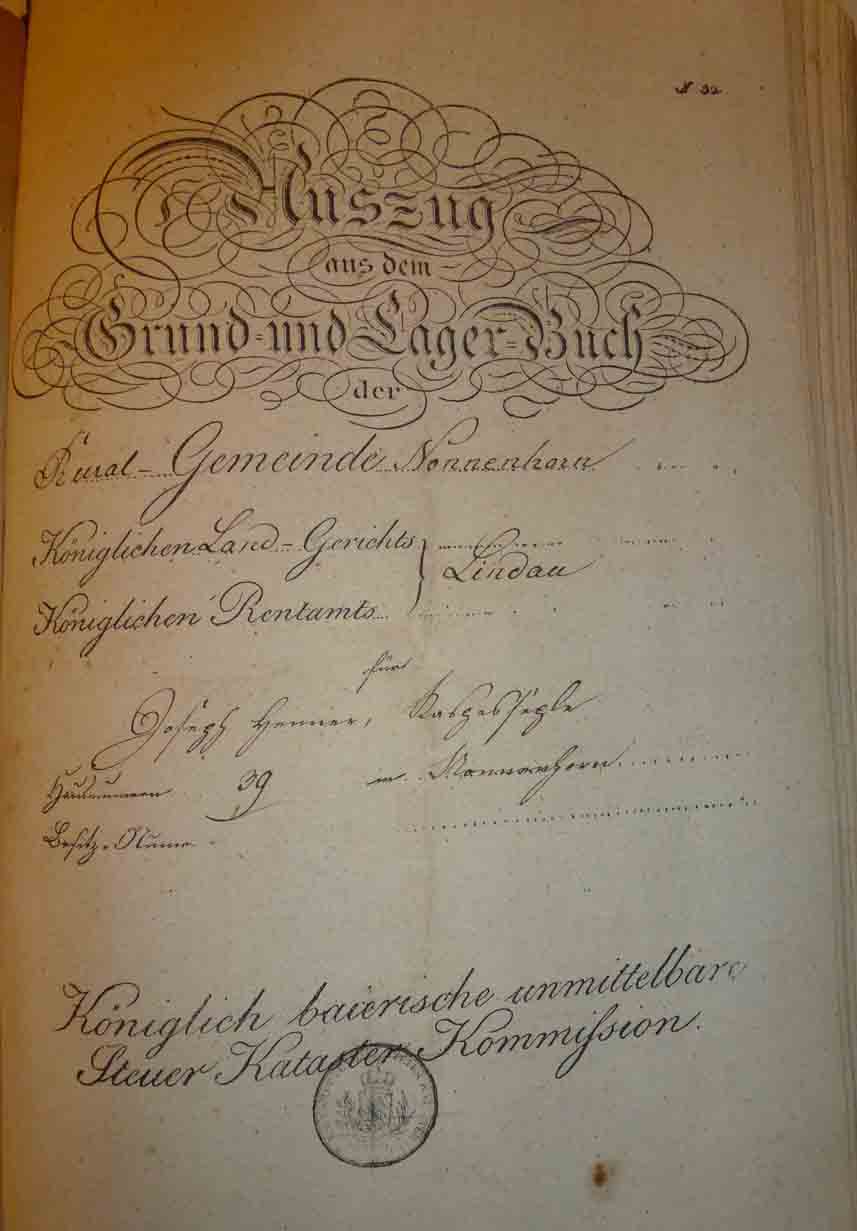 N 32.
Auszug
aus dem
Grund- und Lager-Buch
der
Rural-Gemeinde Nonnenhorn
Königlichen Land-Gerichts
Lindau
Königlichen Rentamts
für
Joseph Henner,
Hausnumern 39 in Nonnenhorn
Besitz-Nume
Königlich baierische unmittelbare
Steuer Kataster Kommission.